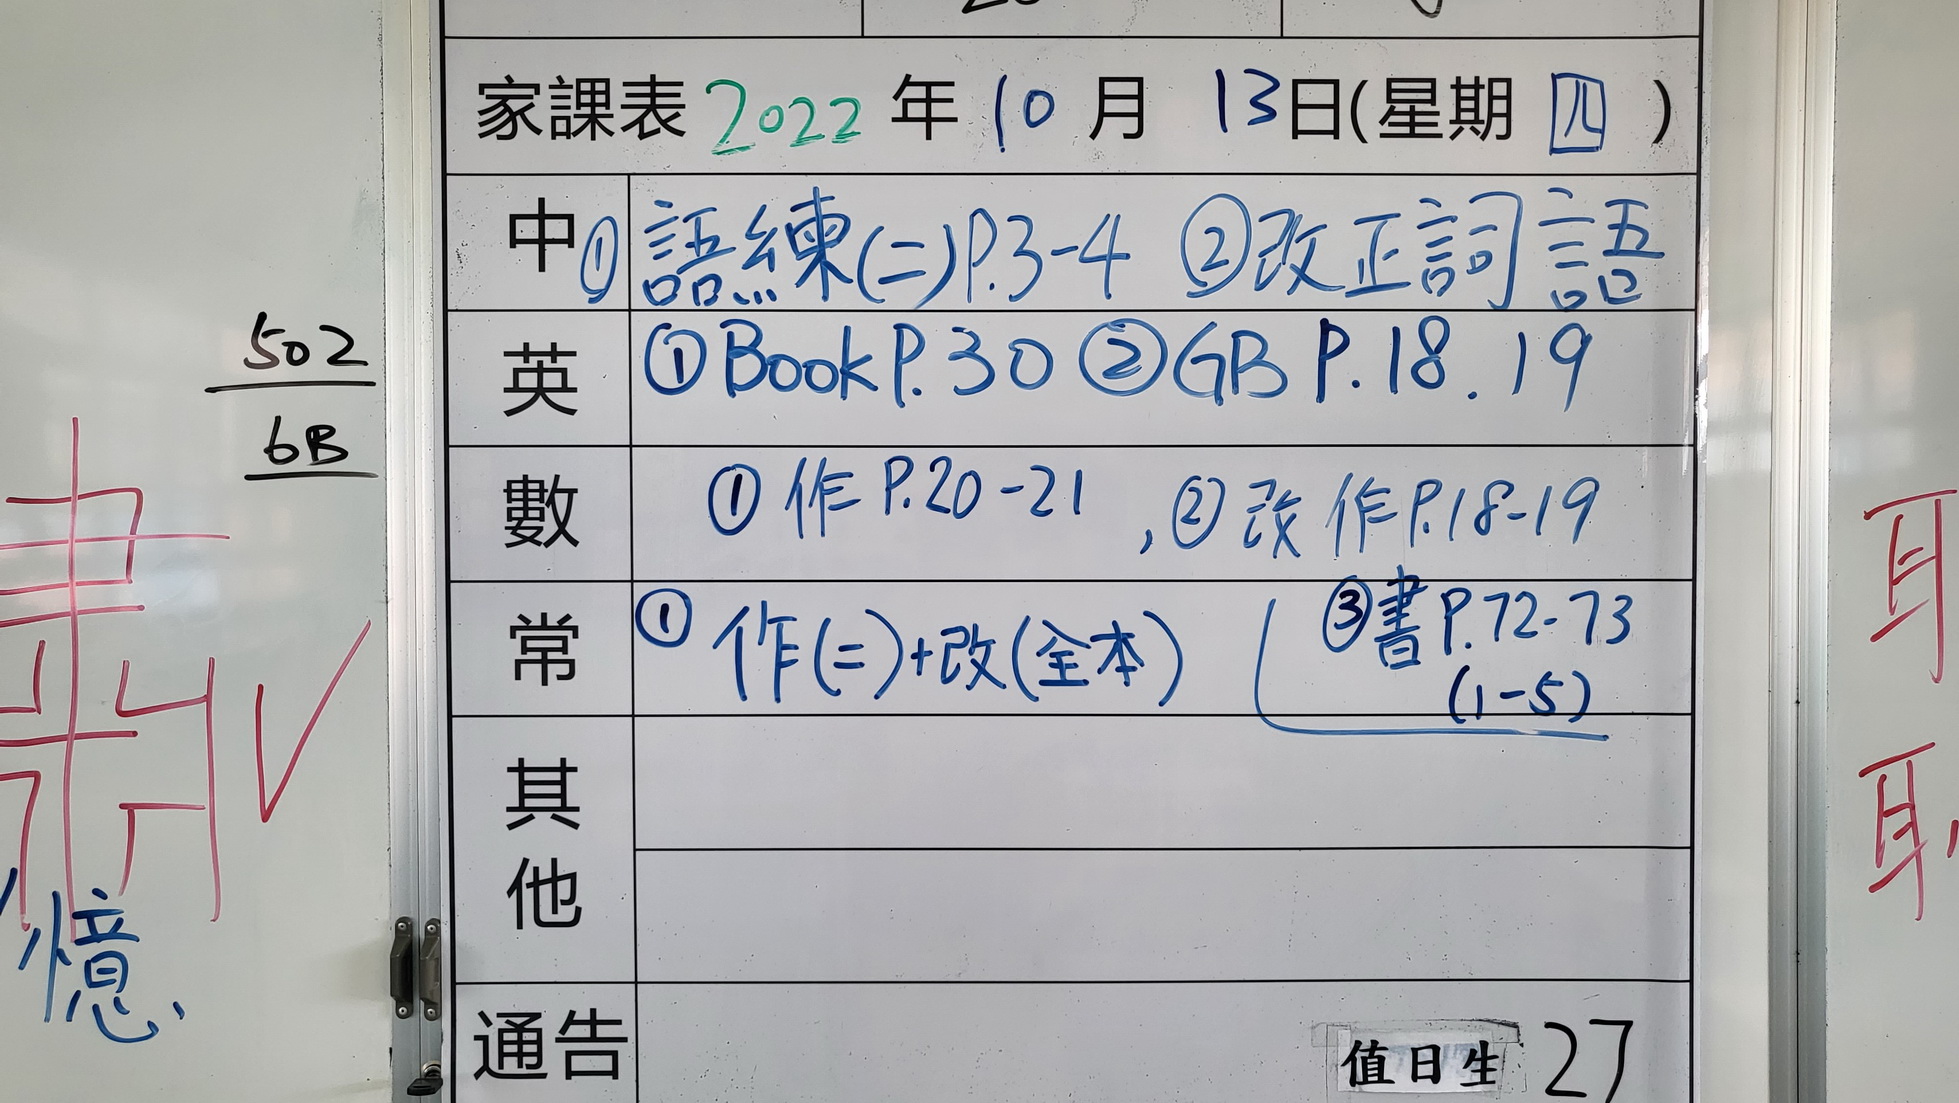 家課表 2022 年 10 月 13日(星期 四 )
中 ① 語練(二)P.3-4 ②改正詞語
英 ①Book P.30 ②GB P.18.19
數 ① 作 P.20-21 , ② 改作 P.18-19
常 ① 作(二)+改(全本) ③書 P.72-73
(1-5)
其他
通告
值日生: 27
502
6B
憶
耳